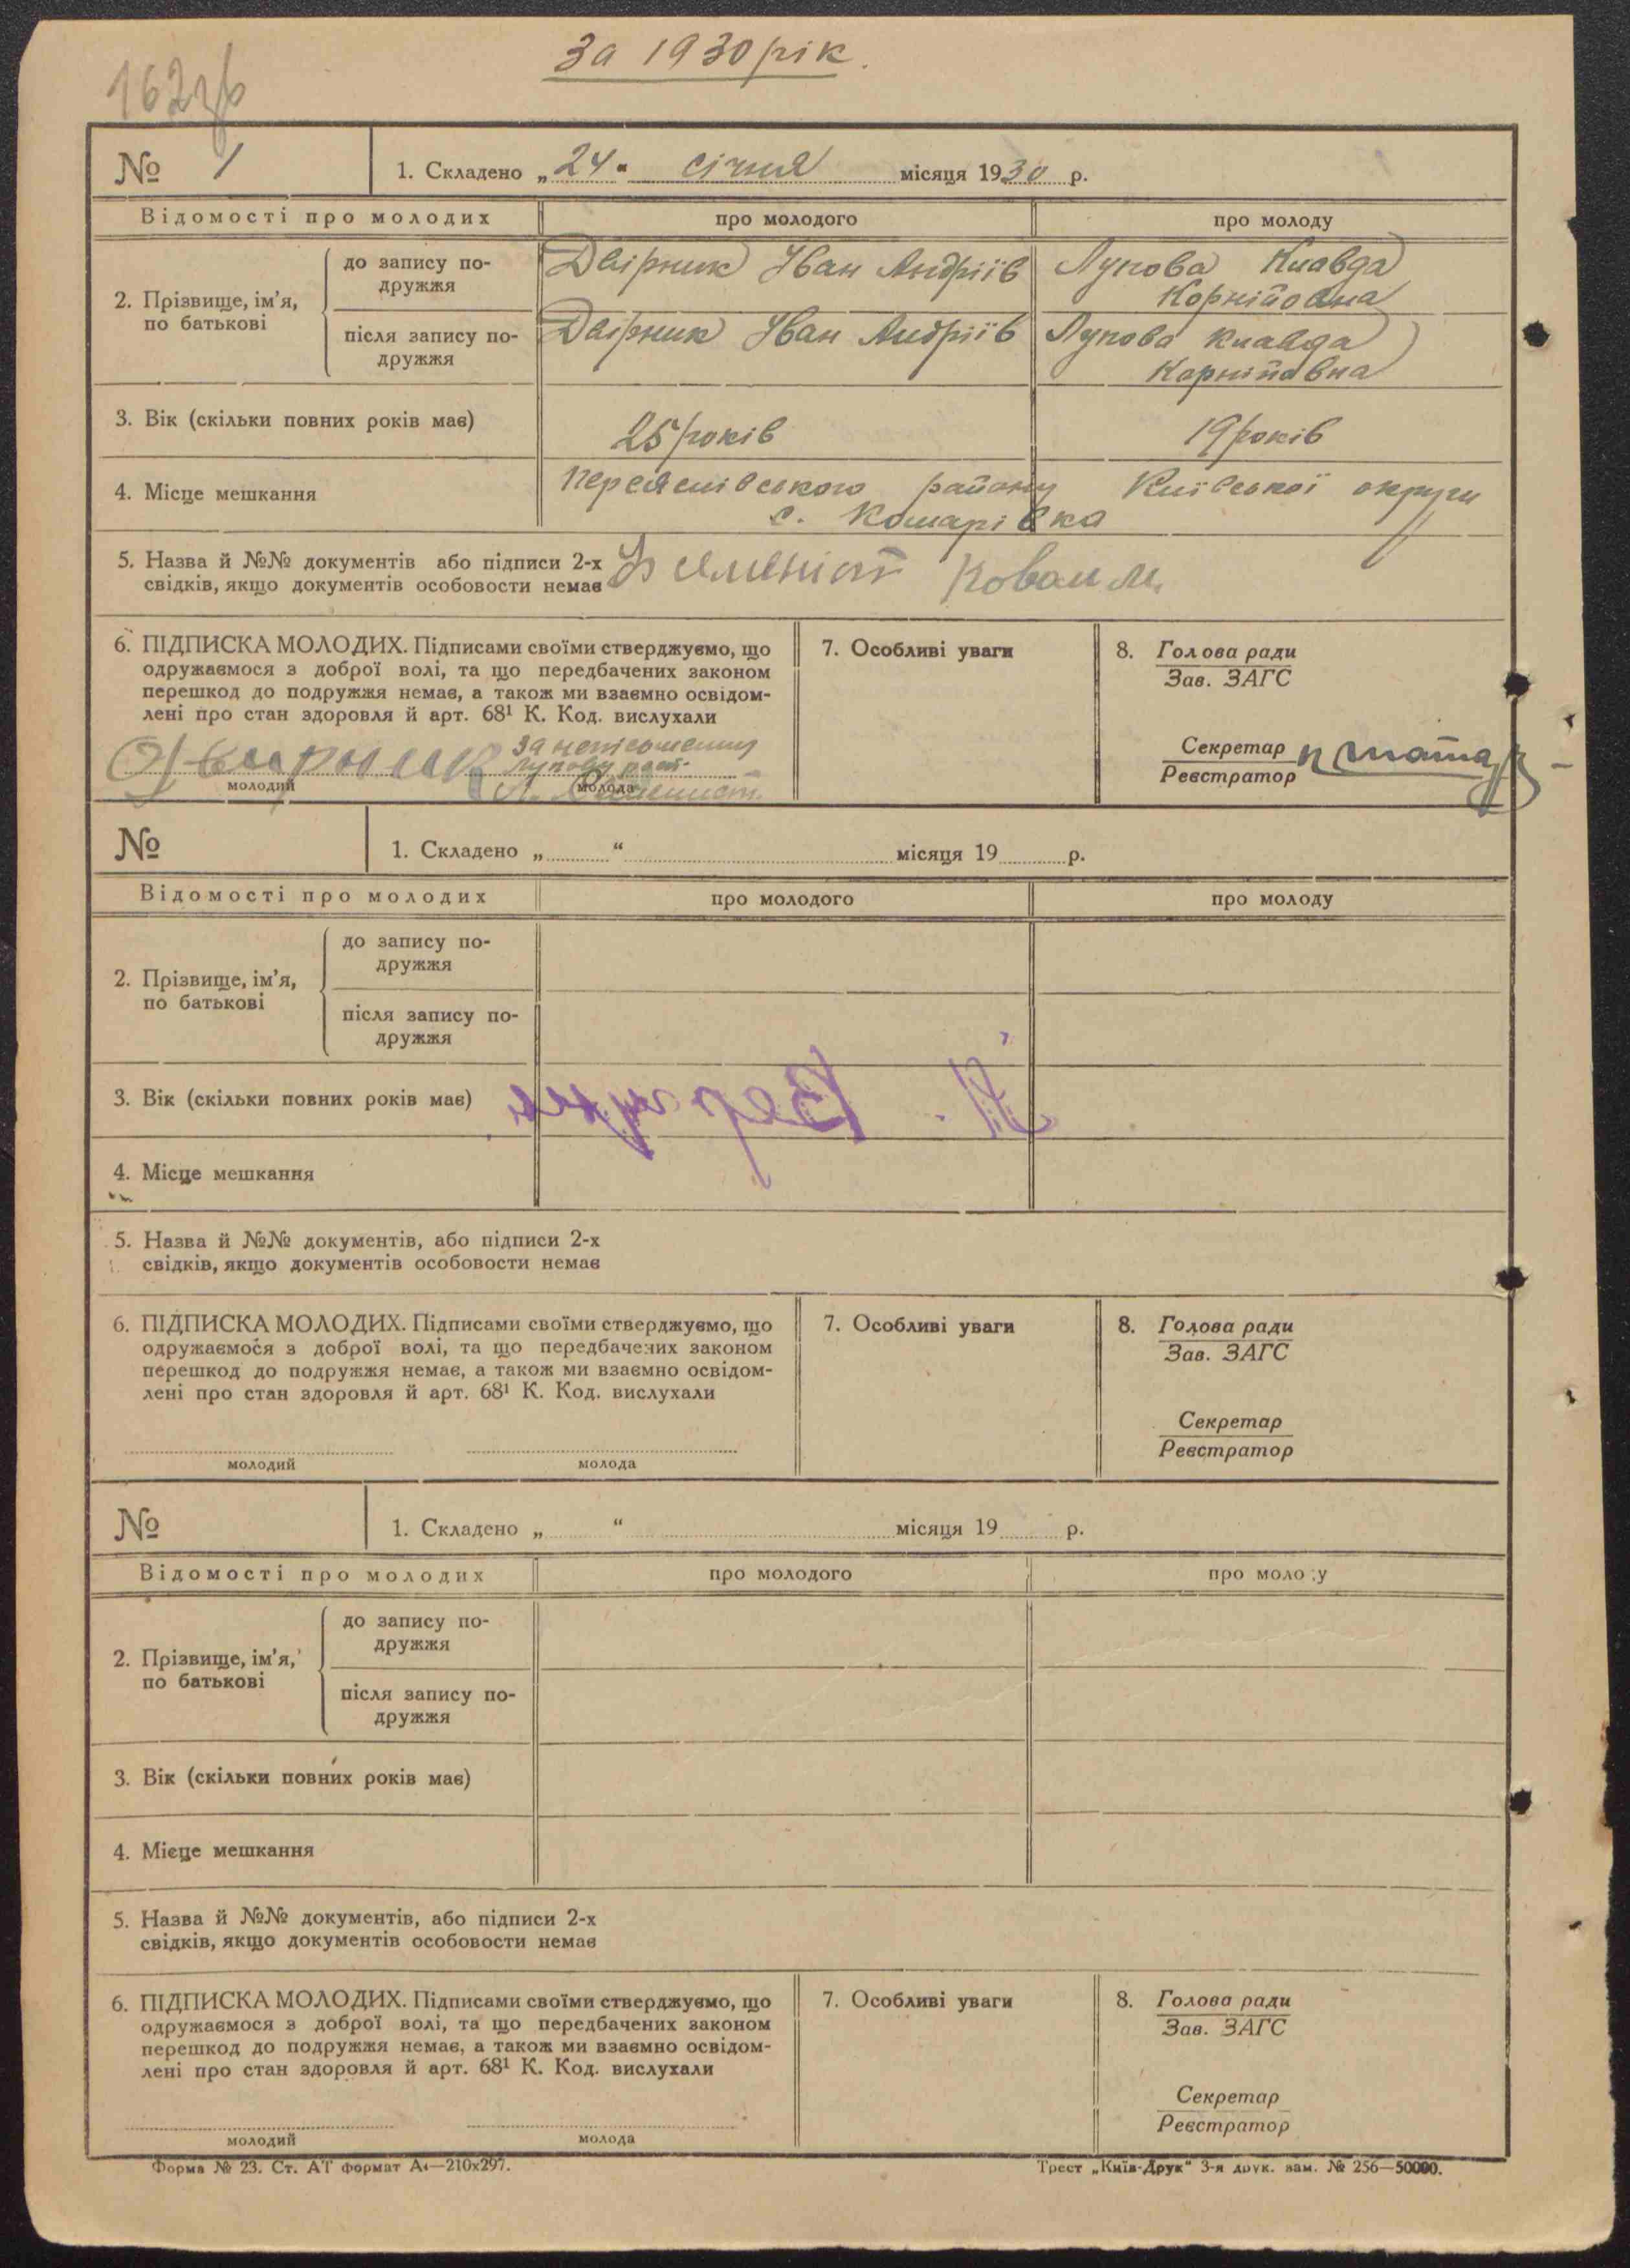 За 1930 рік.
№ 1
1. Складено „24“ січня місяця 1930 р.
Відомості про молодих
про молодого
про молоду
2. Прізвище, ім’я, по батькові
до запису подружжя
Двірник Іван Андріїв
Лупова Клавда Корніївна
після запису подружжя
Двірник Іван Андріїв
Лупова Клавда Корніївна
3. Вік (скільки повних років має)
25 років
19 років
4. Місце мешкання
Переяслівського району Київської округи
с. Комарівка
5. Назва й №№ документів або підписи 2-х
свідків, якщо документів особовости немає
Коваль М.
6. ПІДПИСКА МОЛОДИХ. Підписами своїми стверджуємо, що
одружаємося з доброї волі, та що передбачених законом
перешкод до подружжя немає, а також ми взаємно освідом-
лені про стан здоровля й арт. 68¹ К. Код. вислухали
Двирник
молодий
молода
7. Особливі уваги
8. Голова ради
Зав. ЗАГС
Секретар
Реєстратор
№
1. Складено „ “ місяця 19 р.
Відомості про молодих
про молодого
про молоду
2. Прізвище, ім’я,
по батькові
до запису по-
дружжя
після запису по-
дружжя
3. Вік (скільки повних років має)
4. Місце мешкання
5. Назва й №№ документів, або підписи 2-х
свідків, якщо документів особовости немає
6. ПІДПИСКА МОЛОДИХ. Підписами своїми стверджуємо, що
одружаємося з доброї волі, та що передбачених законом
перешкод до подружжя немає, а також ми взаємно освідом-
лені про стан здоровля й арт. 68¹ К. Код. вислухали
молодий
молода
7. Особливі уваги
8. Голова ради
Зав. ЗАГС
Секретар
Реєстратор
№
1. Складено „ “ місяця 19 р.
Відомості про молодих
про молодого
про моло у
2. Прізвище, ім’я,
по батькові
до запису по-
дружжя
після запису по-
дружжя
3. Вік (скільки повних років має)
4. Місце мешкання
5. Назва й №№ документів, або підписи 2-х
свідків, якщо документів особовости немає
6. ПІДПИСКА МОЛОДИХ. Підписами своїми стверджуємо, що
одружаємося з доброї волі, та що передбачених законом
перешкод до подружжя немає, а також ми взаємно освідом-
лені про стан здоровля й арт. 68¹ К. Код. вислухали
молодий
молода
7. Особливі уваги
8. Голова ради
Зав. ЗАГС
Секретар
Реєстратор
Форма № 23. Ст. АТ формат А₄—210x297.
Трест „Київ-Друк“ 3-я друк. зам. № 256—50000.